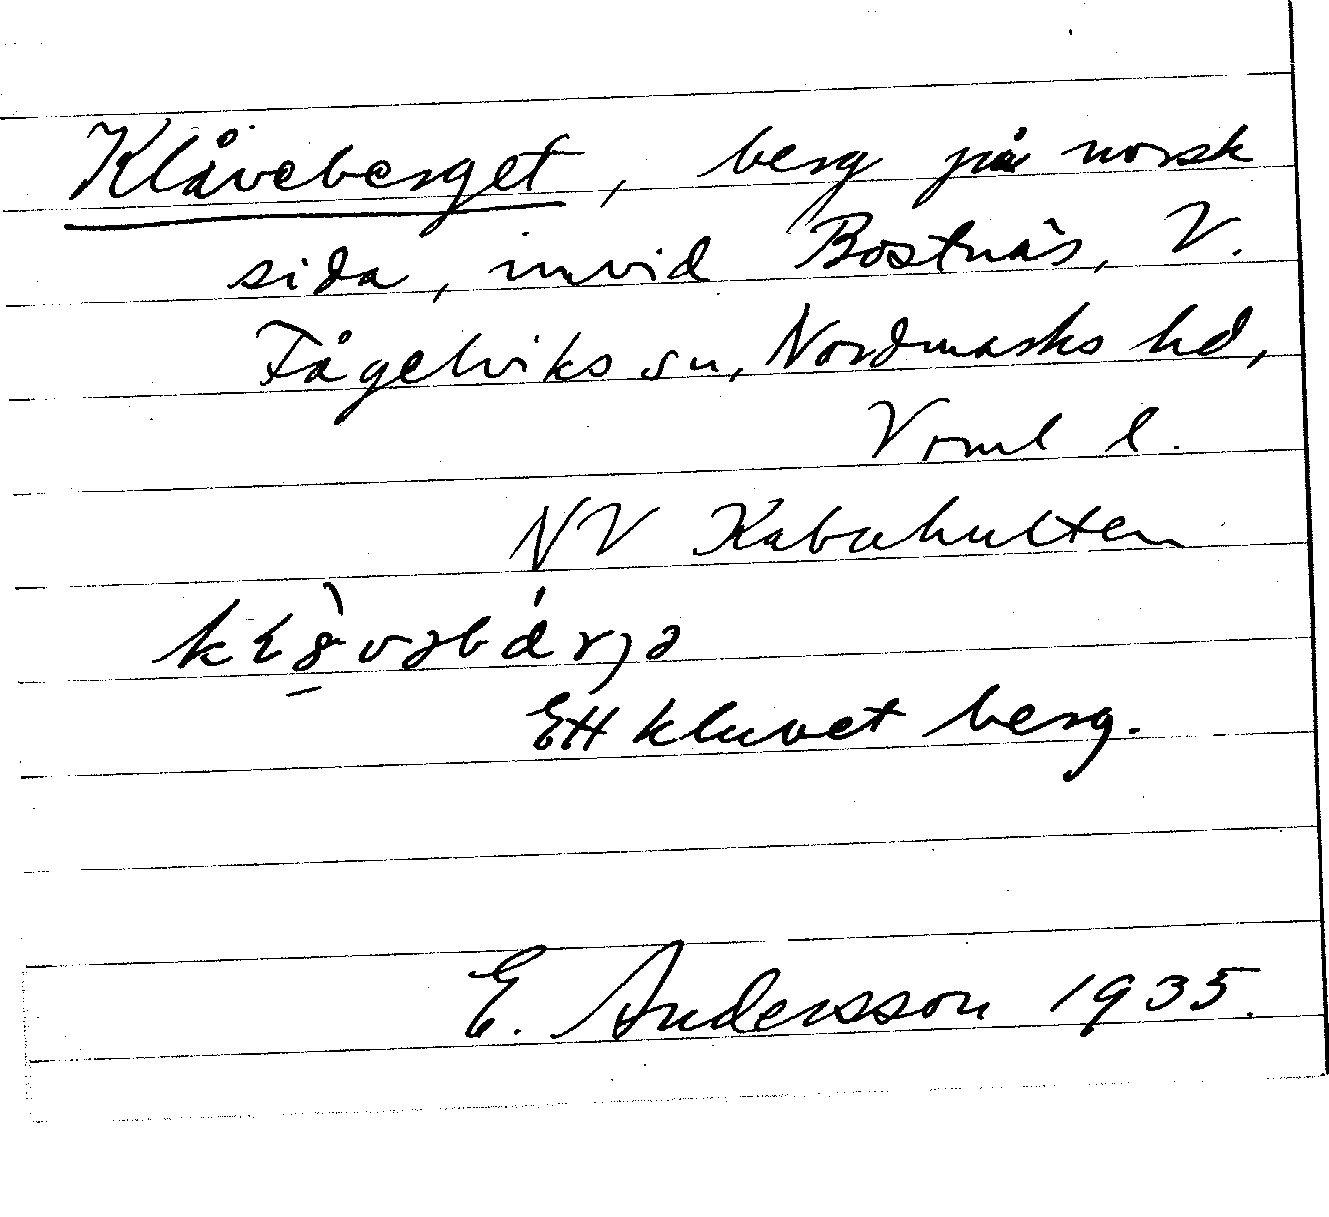 Klåveberget, berg på norsk
sida, invid Bostnäs, V.
Fågelviks sn, Nordmarks hd,
Vrml l.
NV Kabahulten
Ett kluvet berg.
E. Andersson 1935.